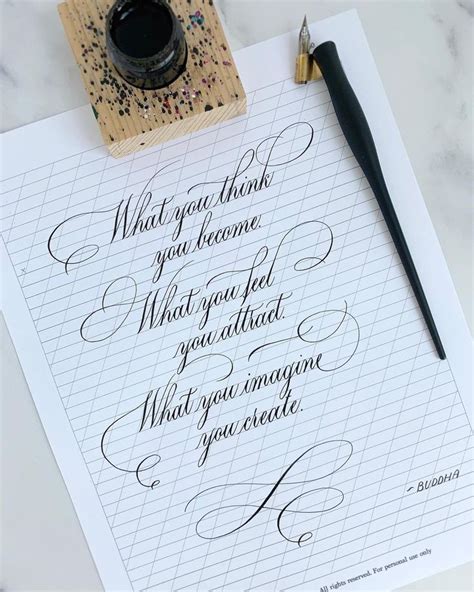 What you think
you become.
What you feel
you attract.
What you imagine
you create.
- BUDDHA
All rights reserved. For personal use only